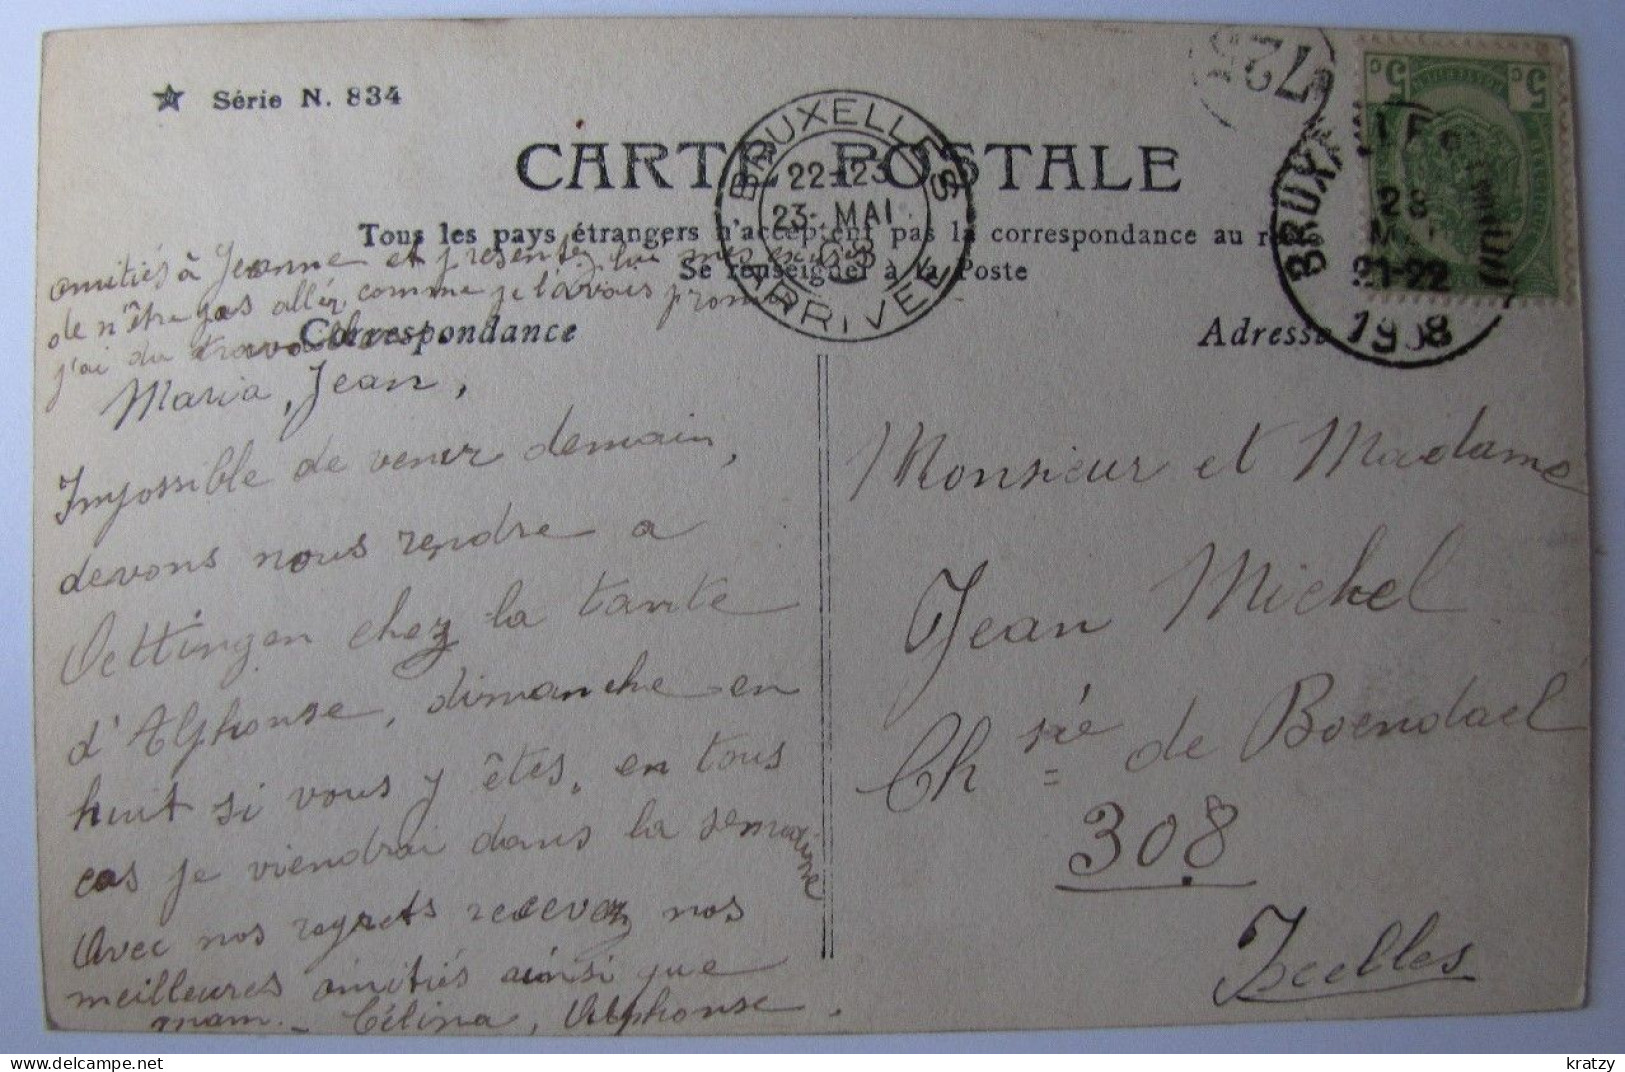 ★ Série N. 834
CARTE POSTALE
Tous les pays étrangers n'acceptent pas la correspondance au
Se renseigner à la Poste
Correspondance
Adresse
BRUXELLES
22-23
23 MAI
ARRIVEE
BRUX
28
21-22
1908
5 c
c 5
amitiés à Jeanne et présentez lui mes excuses
de n'être pas allée, comme je l'avais promis
j'ai du travail
Maria, Jean,
Impossible de venir demain,
devons nous rendre a
Oettingen chez la tante
d'Alphonse, dimanche en
huit si vous y êtes, en tous
cas je viendrai dans la semaine
Avec nos regrets recevez nos
meilleures amitiés ainsi que
mam. - Célina, Alphonse.
Monsieur et Madame
Jean Michel
Ch sée de Boendael
308
Ixelles
kratzy